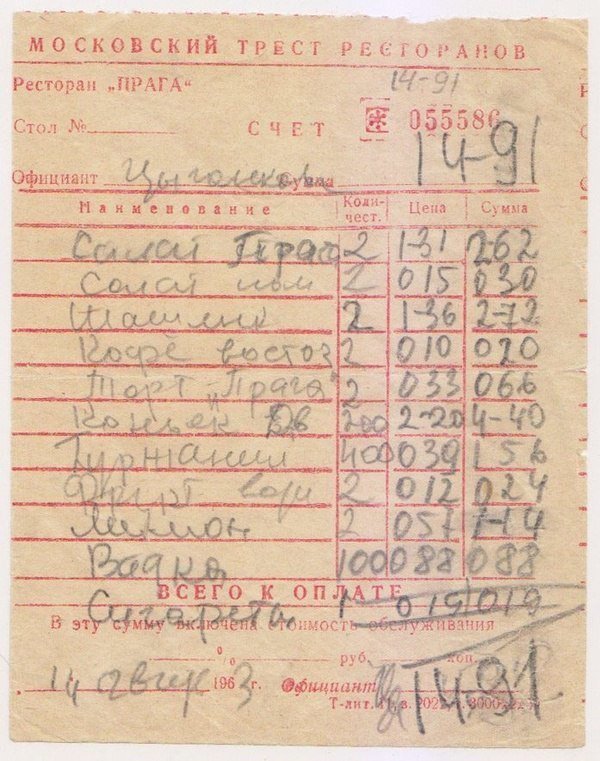 МОСКОВСКИЙ ТРЕСТ РЕСТОРАНОВ
Ресторан „ПРАГА“ 14-91
Стол № СЧЕТ 055586
Официант Сумма 14-91
Наименование Коли-чест. Цена Сумма
Салат Прага 2 1-31 2-62
Салат пом 2 015 030
Шашлик 2 1-36 2-72
Кофе восточ 2 010 020
Торт „Прага“ 2 033 066
Коньек 200 2-20 4-40
Гурджании 400 039 156
Фрукт воды 2 012 024
Лимон 2 057 1-14
Водка 100 088 088
ВСЕГО К ОПЛАТЕ
Сигареты 1 019 019
В эту сумму включена стоимость обслуживания
% руб. коп.
14 август 1963 г. Официант 14-91
Т-лит.